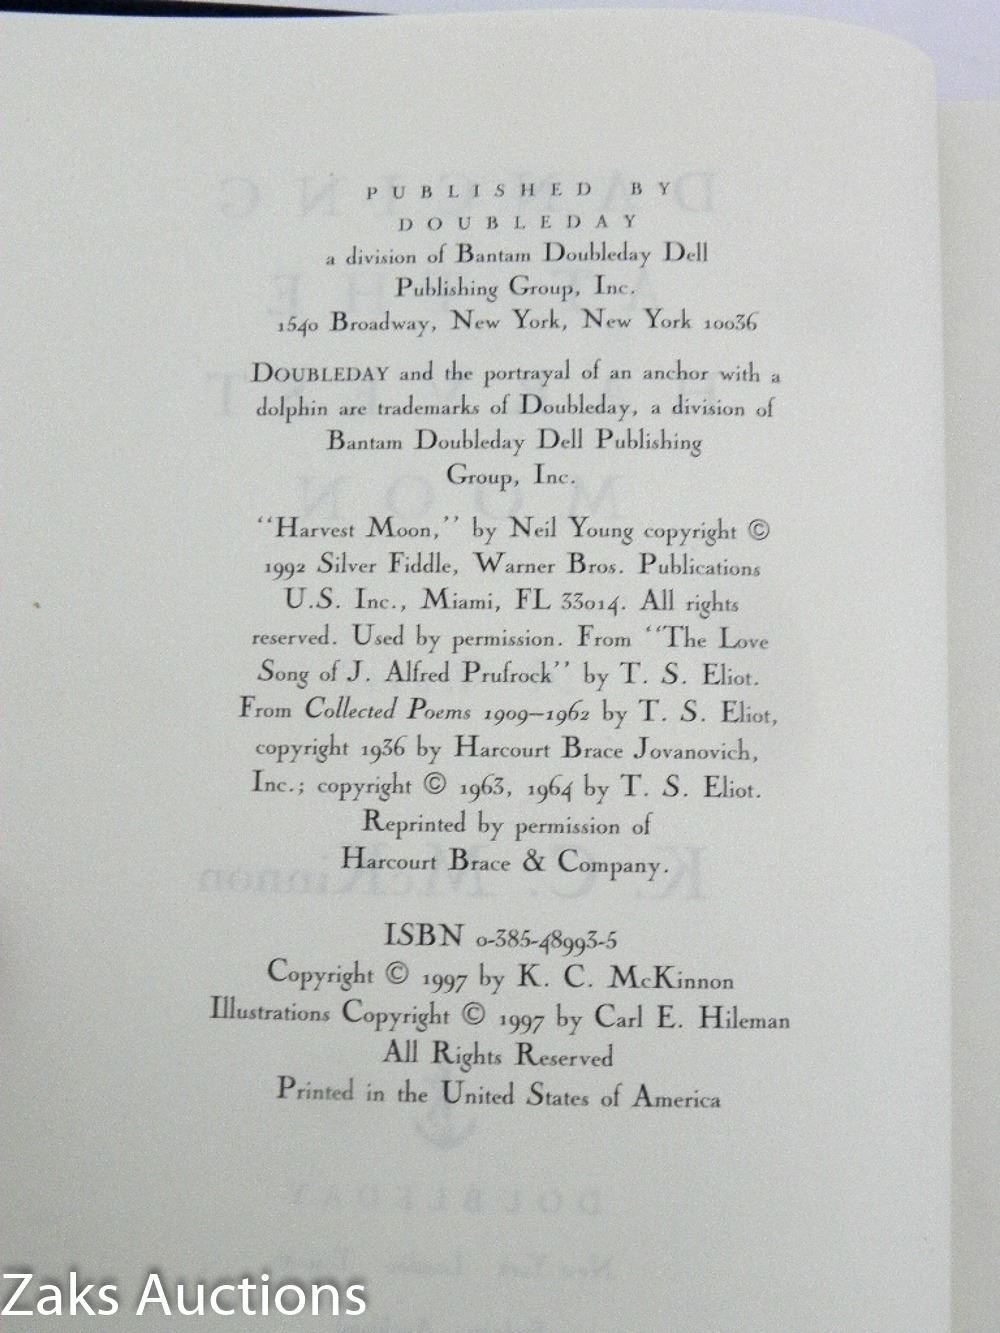 PUBLISHED BY
DOUBLEDAY
a division of Bantam Doubleday Dell
Publishing Group, Inc.
1540 Broadway, New York, New York 10036
DOUBLEDAY and the portrayal of an anchor with a
dolphin are trademarks of Doubleday, a division of
Bantam Doubleday Dell Publishing
Group, Inc.
"Harvest Moon," by Neil Young copyright ©
1992 Silver Fiddle, Warner Bros. Publications
U.S. Inc., Miami, FL 33014. All rights
reserved. Used by permission. From "The Love
Song of J. Alfred Prufrock" by T. S. Eliot.
From Collected Poems 1909–1962 by T. S. Eliot,
copyright 1936 by Harcourt Brace Jovanovich,
Inc.; copyright © 1963, 1964 by T. S. Eliot.
Reprinted by permission of
Harcourt Brace & Company.
ISBN 0-385-48993-5
Copyright © 1997 by K. C. McKinnon
Illustrations Copyright © 1997 by Carl E. Hileman
All Rights Reserved
Printed in the United States of America
DOUBLEDAY
Zaks Auctions